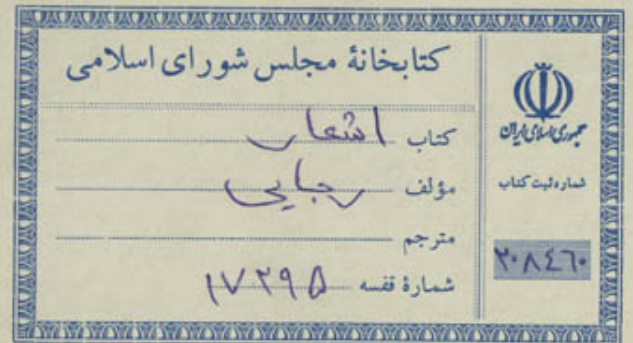 کتابخانهٔ مجلس شورای اسلامی
کتاب اشعار
مؤلف رجایی
مترجم
شمارهٔ قفسه ۱۷۲۹۵
جمهوری اسلامی ایران
شماره ثبت کتاب
۲۰۸۴۶۰